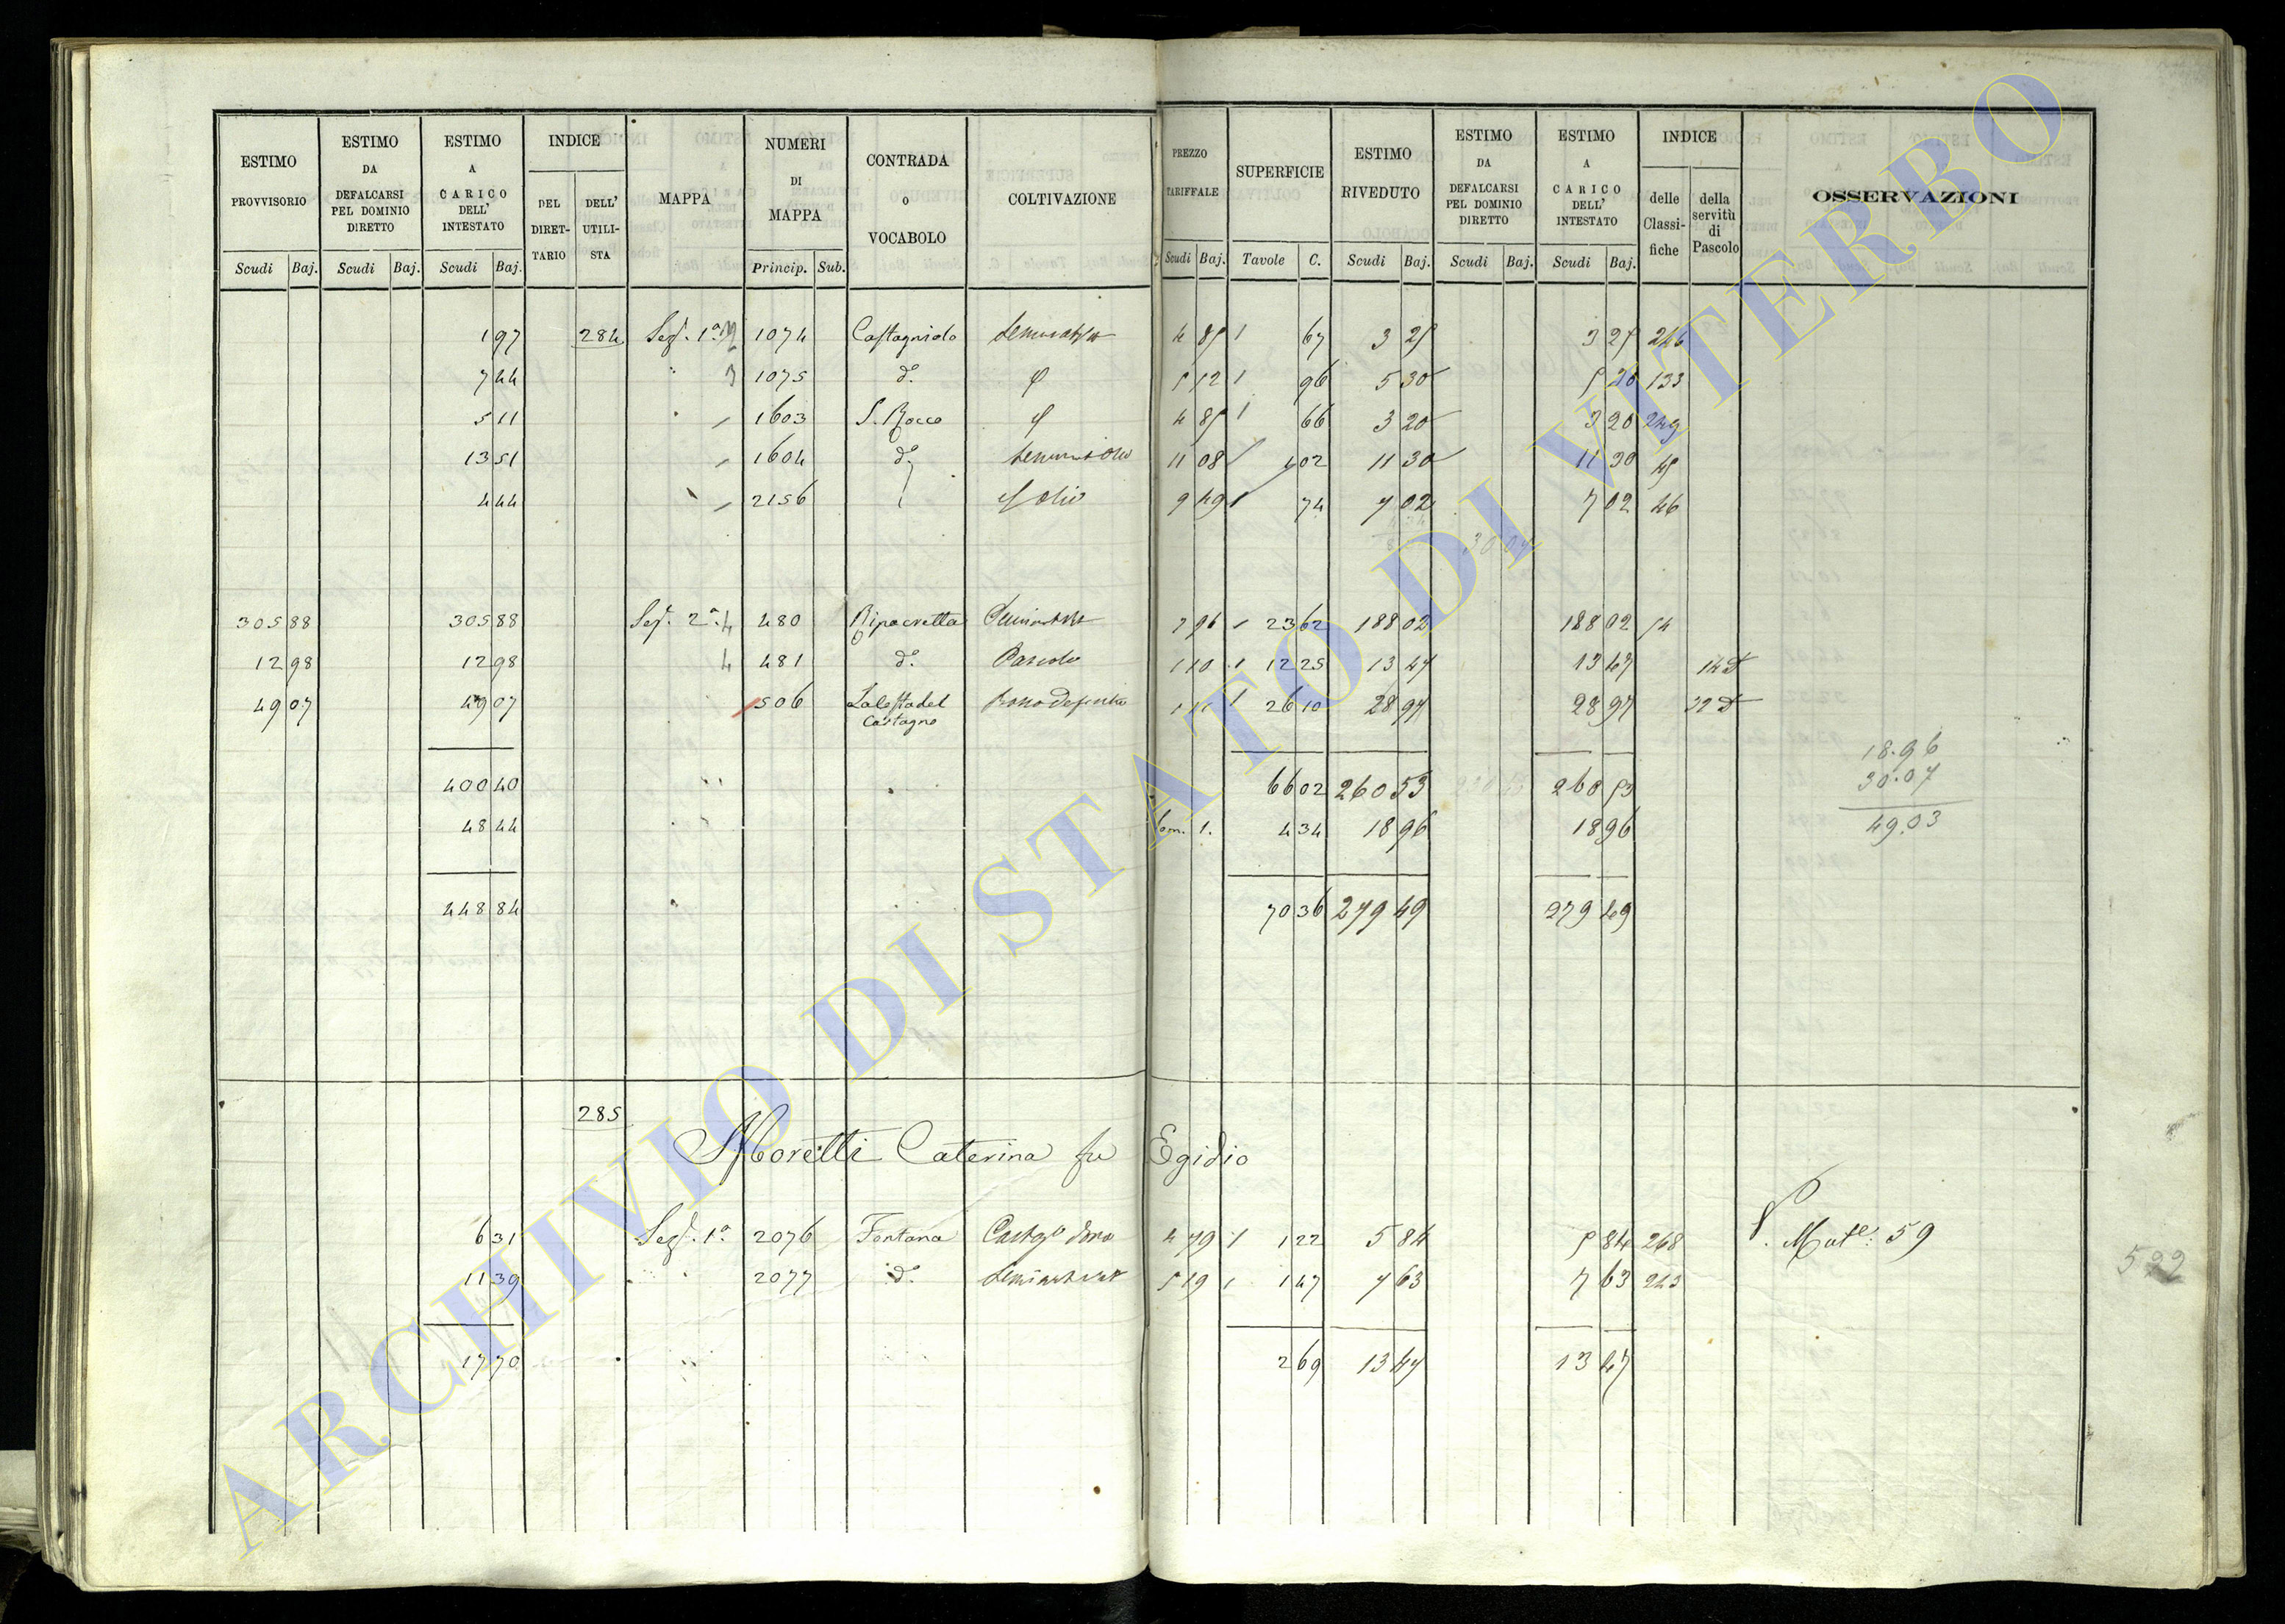 ESTIMO PROVVISORIO ESTIMO DA DEFALCARSI PEL DOMINIO DIRETTO ESTIMO A CARICO DELL' INTESTATO INDICE DEL DIRET-TARIO DELL' UTILI-STA MAPPA NUMERI DI MAPPA CONTRADA O VOCABOLO COLTIVAZIONE PREZZO TARIFFALE SUPERFICIE ESTIMO RIVEDUTO ESTIMO DA DEFALCARSI PEL DOMINIO DIRETTO ESTIMO A CARICO DELL' INTESTATO INDICE delle Classi-fiche della servitù di Pascolo OSSERVAZIONI
Scudi Baj. Scudi Baj. Scudi Baj. Princip. Sub. Scudi Baj. Tavole C. Scudi Baj. Scudi Baj. Scudi Baj.
1 97 284 Sez. 1ª 1074 Castagnolo 4 85 67 3 25 3 25 246
7 44 1075 d.º 5 12 96 5 30 5 30 133
5 11 1603 S. Rocco 4 85 66 3 20 3 20 249
13 51 1604 d.º 11 08 1 02 11 30 11 30 45
4 44 2156 9 49 74 7 02 7 02 46
305 88 305 88 Sez. 2ª 4 480 Ripacretta 7 96 23 62 188 02 188 02 54
12 98 12 98 4 481 d.º Pascolo 1 10 12 25 13 47 13 47 14
49 07 49 07 506 La Costa del Castagno 26 10 28 97 28 97
400 40 66 02 260 53 260 53
48 44 4 34 18 96 18 96
448 84 70 36 279 49 279 49
18.96
30.07
49.03
285
Moretti Caterina fu Egidio
6 31 Sez. 1ª 2076 Fontana 4 79 1 22 5 84 5 84 268 V. Mat.e: 59
11 39 2077 d.º 5 19 1 47 7 63 7 63 243
522
17 70 2 69 13 47 13 47
ARCHIVIO DI STATO DI VITERBO